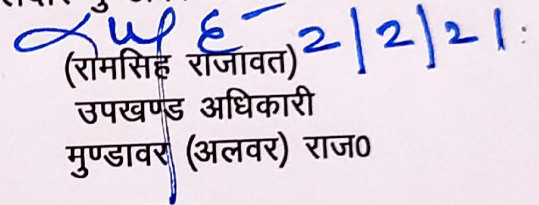 2/2/21
(रामसिंह राजावत)
उपखण्ड अधिकारी
मुण्डावर (अलवर) राज0